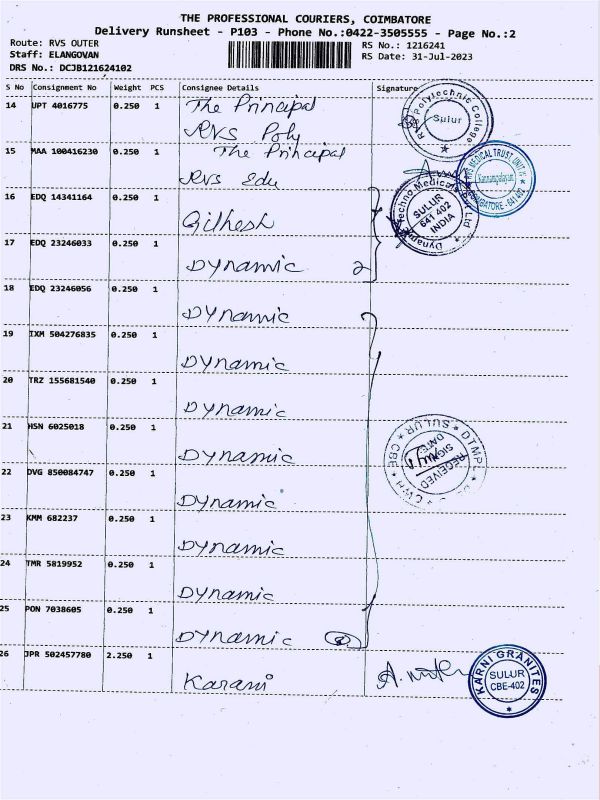 THE PROFESSIONAL COURIERS, COIMBATORE
Delivery Runsheet - P103 - Phone No.:0422-3505555 - Page No.:2
Route: RVS OUTER
RS No.: 1216241
Staff: ELANGOVAN
RS Date: 31-Jul-2023
DRS No.: DCJB121624102
S No Consignment No Weight PCS Consignee Details Signature
14 UPT 4016775 0.250 1 The Principal
RVS Poly
RVS Polytechnic College
Sulur
15 MAA 100416230 0.250 1 The Principal
RVS Edu
RVS MEDICAL TRUST, UNIT II
Kannampalayam
COIMBATORE - 641 402
16 EDQ 14341164 0.250 1
Gilhesh
Dynamic Techno Medicals Pvt Ltd
SULUR
641 402
INDIA
17 EDQ 23246033 0.250 1
Dynamic 2
18 EDQ 23246056 0.250 1
Dynamic
19 IXM 504276835 0.250 1
Dynamic
20 TRZ 155681540 0.250 1
Dynamic
21 HSN 6025018 0.250 1
Dynamic
DTMPL
CWH CBE SULUR
RECEIVED
SIGN
DATE:
22 DVG 850084747 0.250 1
Dynamic
23 KMM 682237 0.250 1
Dynamic
24 TMR 5819952 0.250 1
Dynamic
25 PON 7038605 0.250 1
Dynamic 8
26 JPR 502457780 2.250 1
Karani
KARNI GRANITES
SULUR
CBE-402